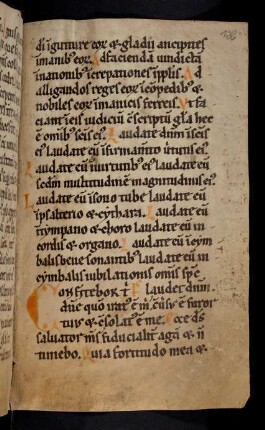 di ingutture eor & gladii ancipites
in manib; eor. Ad faciendā uindictā
in nationib; increpationes in pplis. Ad
alligandos reges eor in cōpedib; &
nobiles eor in manicis ferreis. Ut fa
ciant in eis iudiciū cscriptū gła hec
ē omib; scīs ei. Laudate dnm in scīs
ei laudate eū in firmamto uirtutis ei.
Laudate eū in uirtutib; ei laudate eū
scdm multitudinē magnitudinis ei.
Laudate eū in sono tube laudate eū
in psalterio & cythara. Laudate eū
in tympano & choro laudate eū in
cordis & organo. Laudate eū in cym
balis bene sonantib; laudate eū in
cymbalis iubilationis omis spc
Confitebor t
dne quo irat ē m cūsus ē furor
tuus & cōsolat ē me. Ecce ds
saluator ms fiducialit agā & ñ
timebo. Quia fortitudo mea &